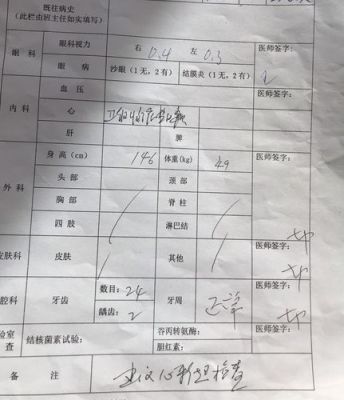 既往病史
(此栏由班主任如实填写)
眼科 眼科视力 右 0.4 左 0.3 医师签字:
眼病 沙眼(1无,2有) 结膜炎(1无,2有)
内科 血压 医师签字:
心
肝 脾
外科 身高(cm) 146 体重(kg) 49 医师签字:
头部 颈部
胸部 脊柱
四肢 淋巴结
皮肤科 皮肤 其他 医师签字:
腔科 牙齿 数目:24 牙周 正常 医师签字:
龋齿:2
验室 查 结核菌素试验: 谷丙转氨酶: 医师签字:
胆红素:
备注 建议心新理检查